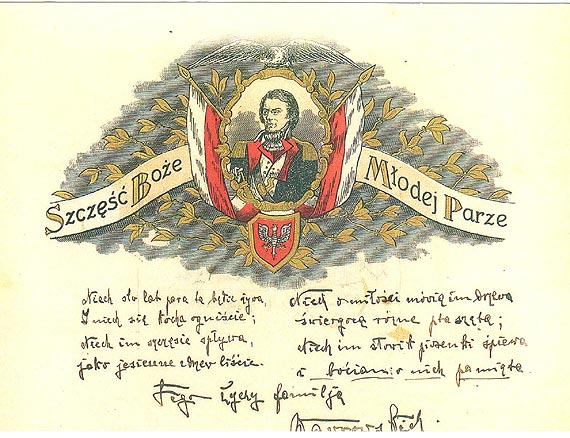 Szczęść Boże
Młodej Parze
Niech sto lat para ta będzie żywa,
I niech się kocha ogniście;
Niech im szczęście spływa,
jako jesienne z drzew liście.
Niech o miłości mówią im drzewa
świergocą różne ptaszęta;
Niech im słowik piosenki śpiewa
i bocian o nich pamięta.
Tego życzy familja